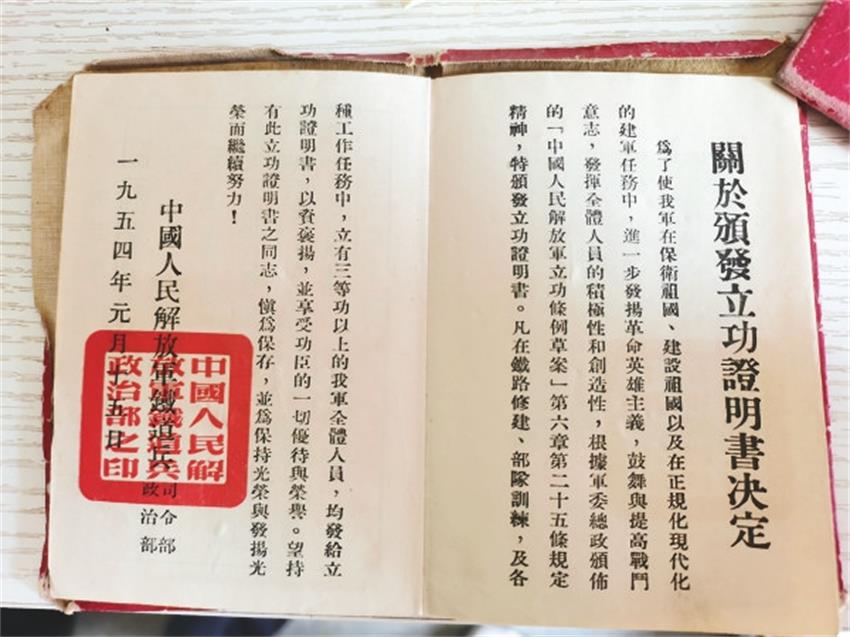 關於頒發立功證明書决定
爲了使我軍在保衛祖國、建設祖國以及在正規化現代化
的建軍任務中，進一步發揚革命英雄主義，鼓舞與提高戰鬥
意志，發揮全體人員的積極性和創造性，根據軍委總政頒佈
的「中國人民解放軍立功條例草案」第六章第二十五條規定
精神，特頒發立功證明書。凡在鐵路修建、部隊訓練，及各
種工作任務中，立有三等功以上的我軍全體人員，均發給立
功證明書，以資褒揚，並享受功臣的一切優待與榮譽。望持
有此立功證明書之同志，愼爲保存，並爲保持光榮與發揚光
榮而繼續努力！
中國人民解放軍鐵道兵司令部
政治部
一九五四年元月十五日
中國人民解
放軍鐵道兵
政治部之印